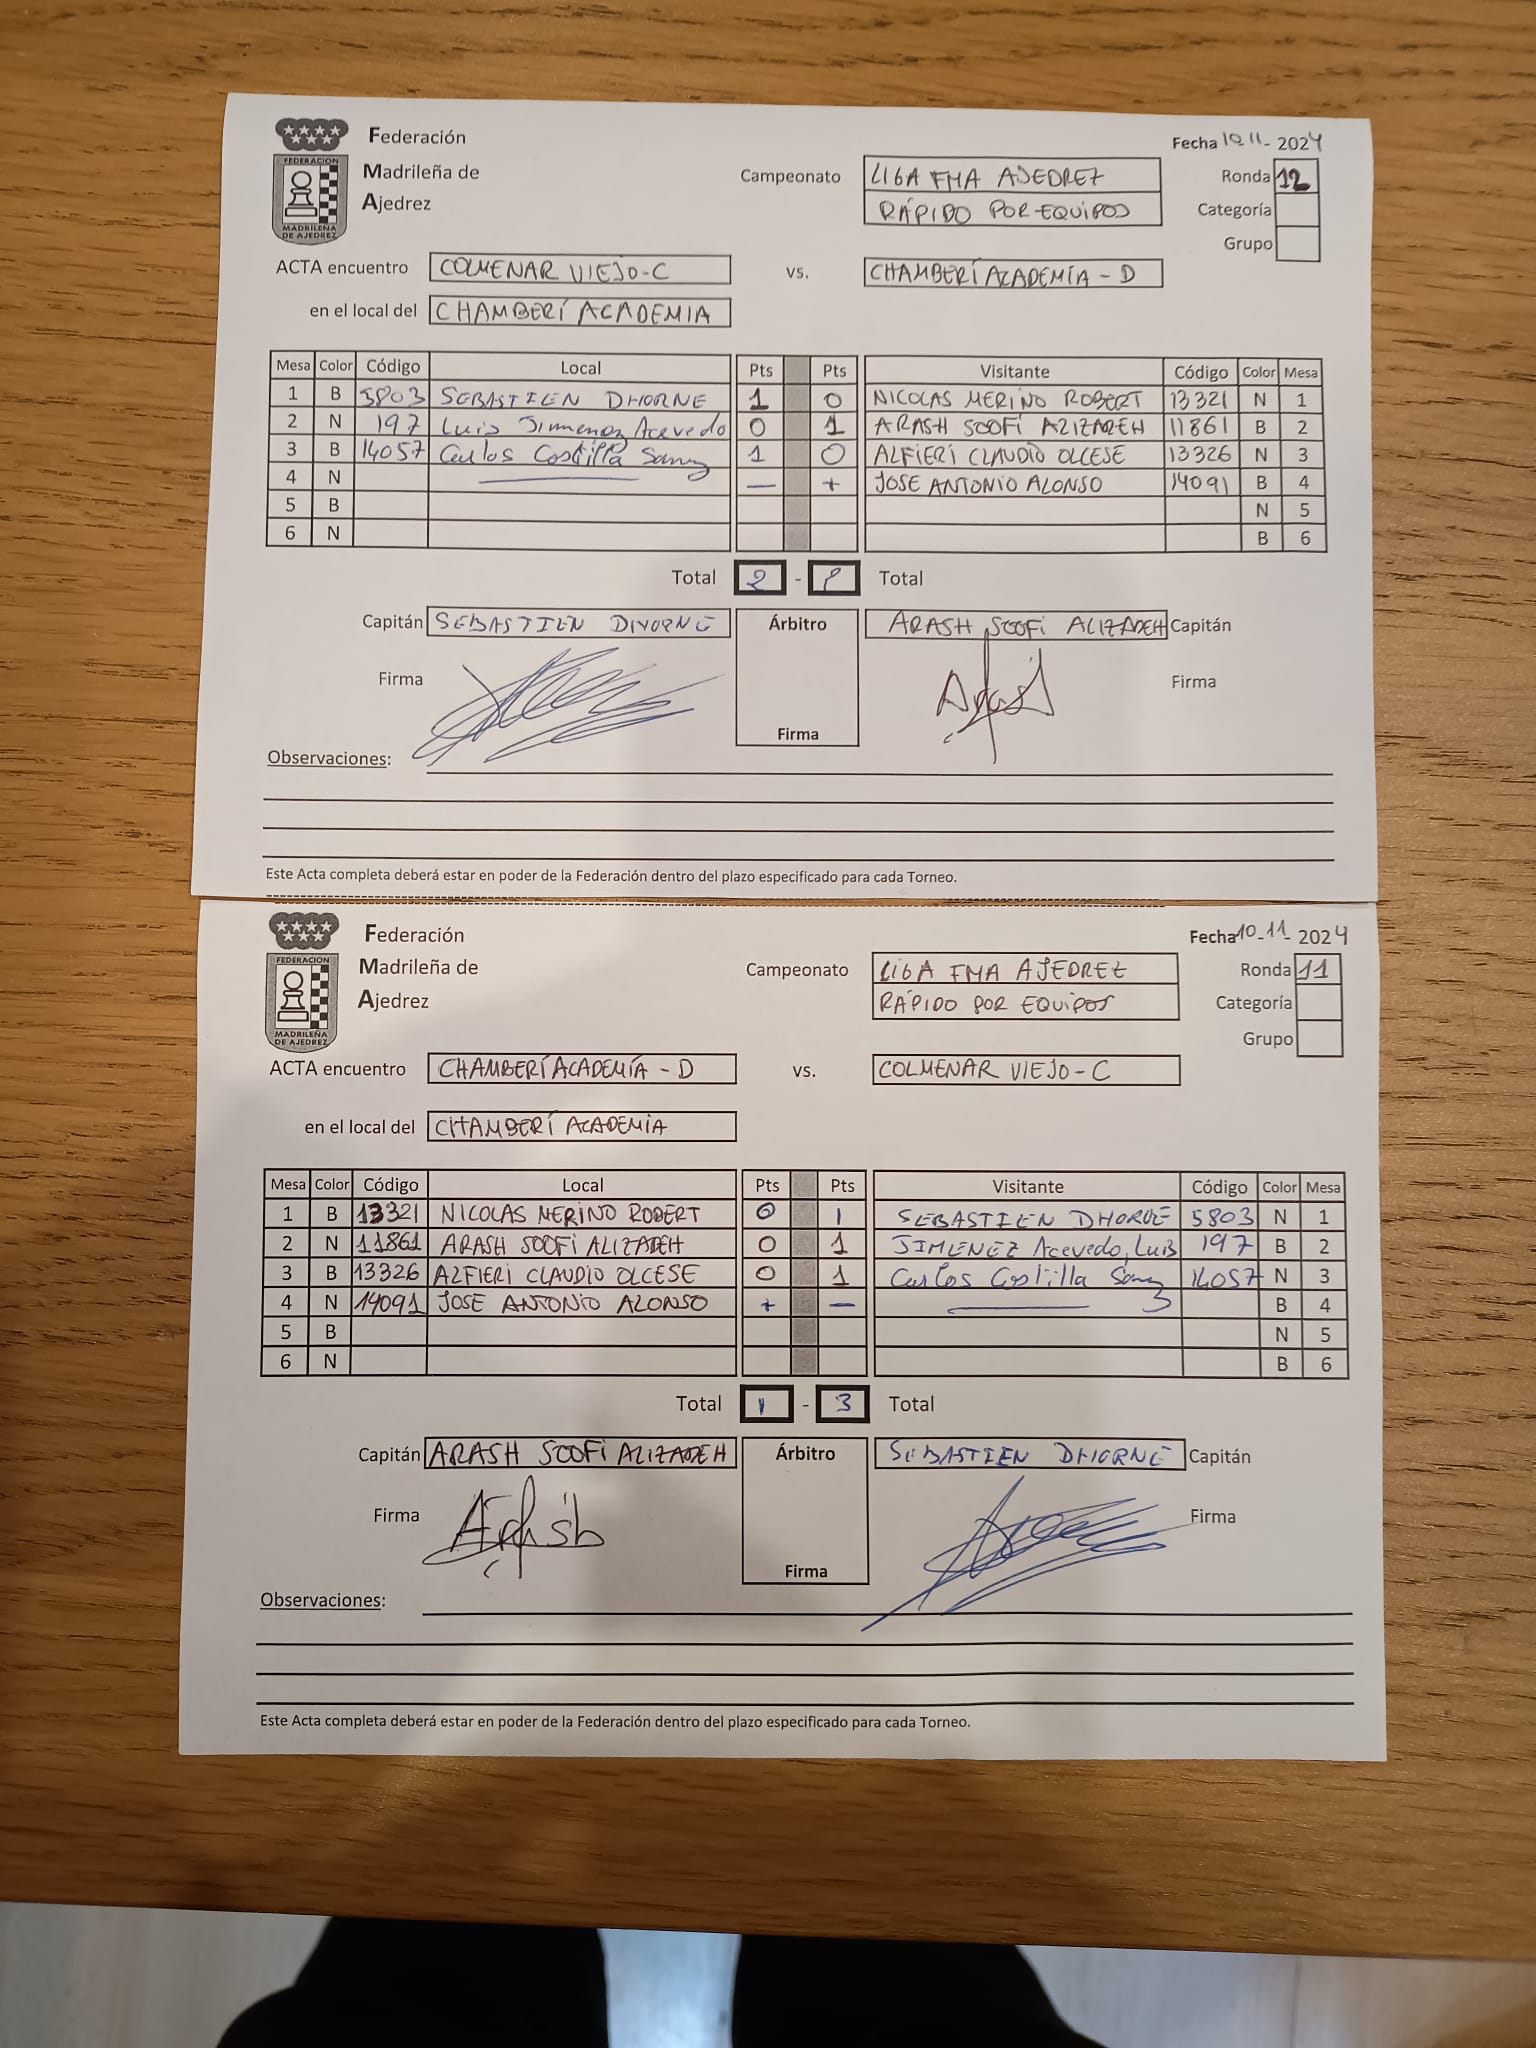 Federación
Madrileña de
Ajedrez
FEDERACION
MADRILEÑA
DE AJEDREZ
Fecha 10-11-2024
Campeonato LIGA FMA AJEDREZ
RÁPIDO POR EQUIPOS
Ronda 12
Categoría
Grupo
ACTA encuentro COLMENAR VIEJO-C vs. CHAMBERÍ ACADEMÍA - D
en el local del CHAMBERÍ ACADEMIA
Mesa Color Código Local Pts Pts Visitante Código Color Mesa
1 B 5803 SEBASTIEN DHORNE 1 0 NICOLAS MERINO ROBERT 13321 N 1
2 N 197 Luis Jimenez Acevedo 0 1 ARASH SOOFI ALIZADEH 11861 B 2
3 B 14057 Carlos Costilla Sanz 1 0 ALFIERI CLAUDIO OLCESE 13326 N 3
4 N — + JOSE ANTONIO ALONSO 14091 B 4
5 B N 5
6 N B 6
Total 2 - Total
Capitán SEBASTIEN DHORNE Árbitro ARASH SOOFI ALIZADEH Capitán
Firma Firma
Firma
Observaciones:
Este Acta completa deberá estar en poder de la Federación dentro del plazo especificado para cada Torneo.
Federación
Madrileña de
Ajedrez
FEDERACION
MADRILEÑA
DE AJEDREZ
Fecha 10-11-2024
Campeonato LIGA FMA AJEDREZ
RÁPIDO POR EQUIPOS
Ronda 11
Categoría
Grupo
ACTA encuentro CHAMBERÍ ACADEMÍA - D vs. COLMENAR VIEJO-C
en el local del CHAMBERÍ ACADEMIA
Mesa Color Código Local Pts Pts Visitante Código Color Mesa
1 B 13321 NICOLAS MERINO ROBERT 0 1 SEBASTIEN DHORNE 5803 N 1
2 N 11861 ARASH SOOFI ALIZADEH 0 1 JIMENEZ Acevedo, Luis 197 B 2
3 B 13326 ALFIERI CLAUDIO OLCESE 0 1 Carlos Costilla Sanz 14057 N 3
4 N 14091 JOSE ANTONIO ALONSO + — B 4
5 B N 5
6 N B 6
Total 1 - 3 Total
Capitán ARASH SOOFI ALIZADEH Árbitro SEBASTIEN DHORNE Capitán
Firma Arash Firma
Firma
Observaciones:
Este Acta completa deberá estar en poder de la Federación dentro del plazo especificado para cada Torneo.